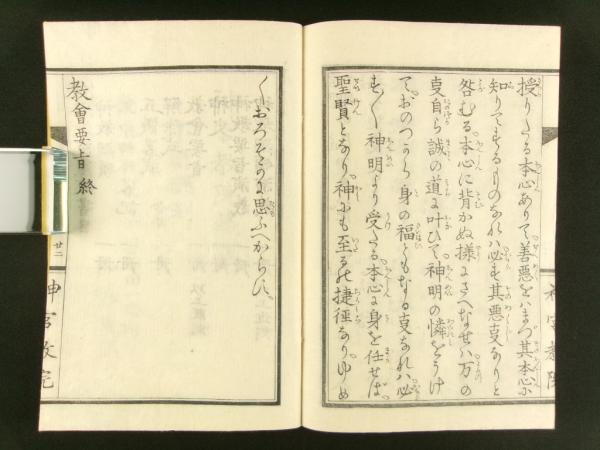 授りたる本心ありて善悪をハまづ其本心に
知りてするものなれハ必ず其悪事なりと
咎むる本心に背かぬ様にさへなせハ万の
事自ら誠の道に叶ひて神明の憐をうけ
ておのつから身の福ともなる事なれハ必
すしく神明より受たる本心に身を任せば
聖賢となり神にも至るの捷径なりゆめ
神宮教院
くおろそかに思ふへからず
教會要旨 終
廿二
神宮教院